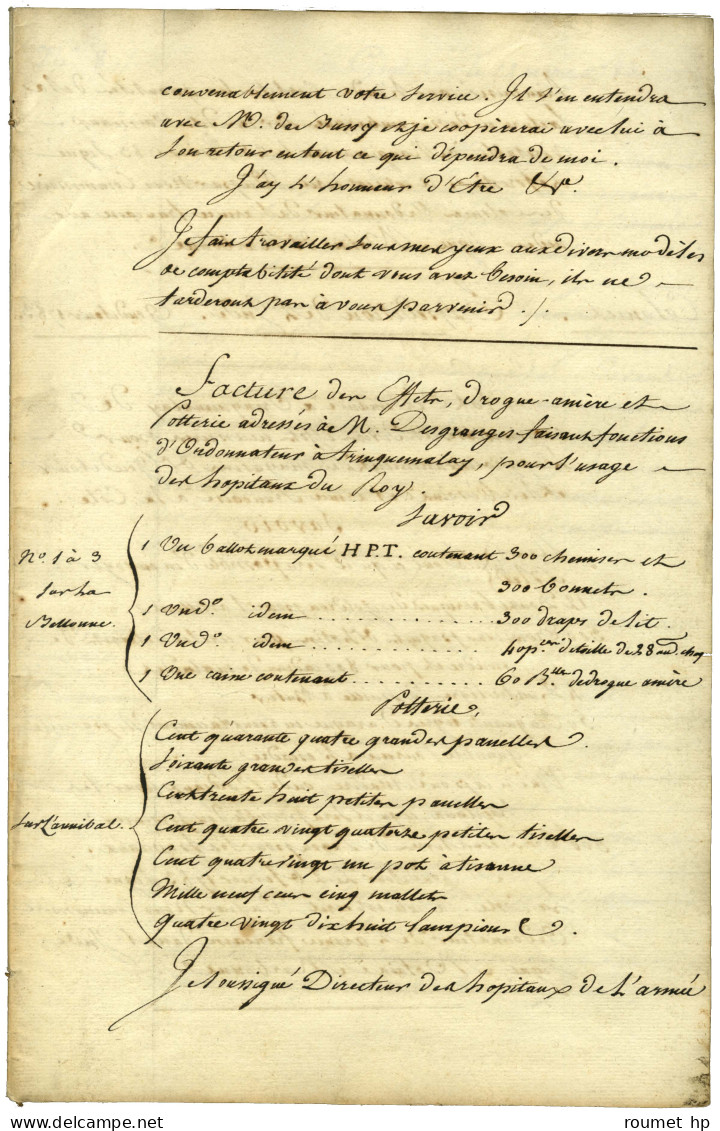 convenablement votre service. Il s'en entendra
avec M. de Bussy et je coopérerai avec lui à
son retour en tout ce qui dépendra de moi.
J'ay L'honneur d'Etre &c.
Je fais travailler sous mes yeux aux divers modèles
de comptabilité dont vous avez besoin, ils ne
tarderont pas à vous parvenir ./.
Facture des Effets, drogue-amère et
Potterie adressés à M. Desgranges faisant fonctions
d'Ordonnateur à trinquemalay, pour l'usage
des hopitaux du Roy.
Savoir
Nos. 1 à 3
sur La
Bellonne.
1 Un ballot marqué H.P.T. contenant 300 chemises et
300 bonnets.
1 Un do. idem ............ 300 draps de lit.
1 Un do. idem ............ 40 pces de toille de 28
1 Une caisse contenant .......... 60 Blles. de drogue amère
Potterie,
Sur L'annibal.
Cent quarante quatre grandes panelles.
Soixante grandes tiselles
Cent trente huit petites panelles
Cent quatre vingt quatorze petites tiselles
Cent quatre vingt un pot à tisanne
Mille neuf cens cinq mallets
quatre vingt dix huit Lampions.
Je soussigné Directeur des hopitaux de L'armée
www.delcampe.net
roumet hp